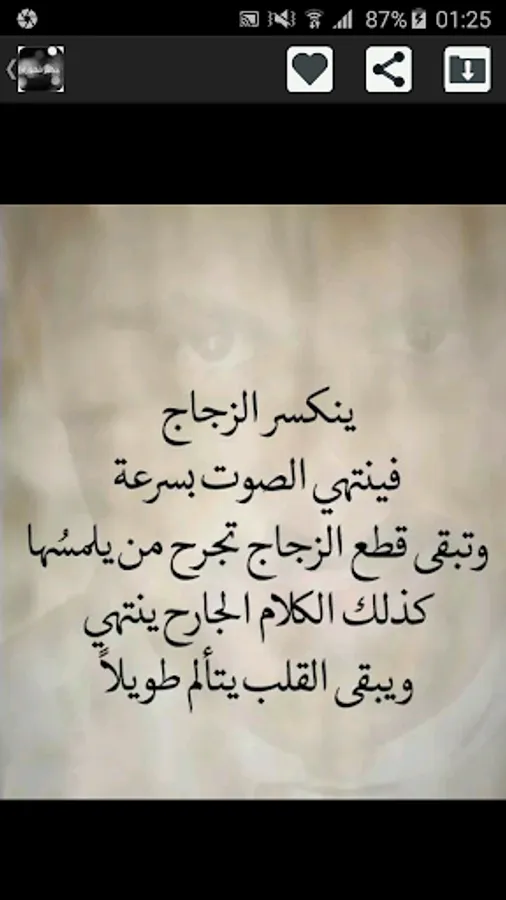 87% 01:25
ينكسر الزجاج
فينتهي الصوت بسرعة
وتبقى قطع الزجاج تجرح من يلمسُها
كذلك الكلام الجارح ينتهي
ويبقى القلب يتألم طويلاً